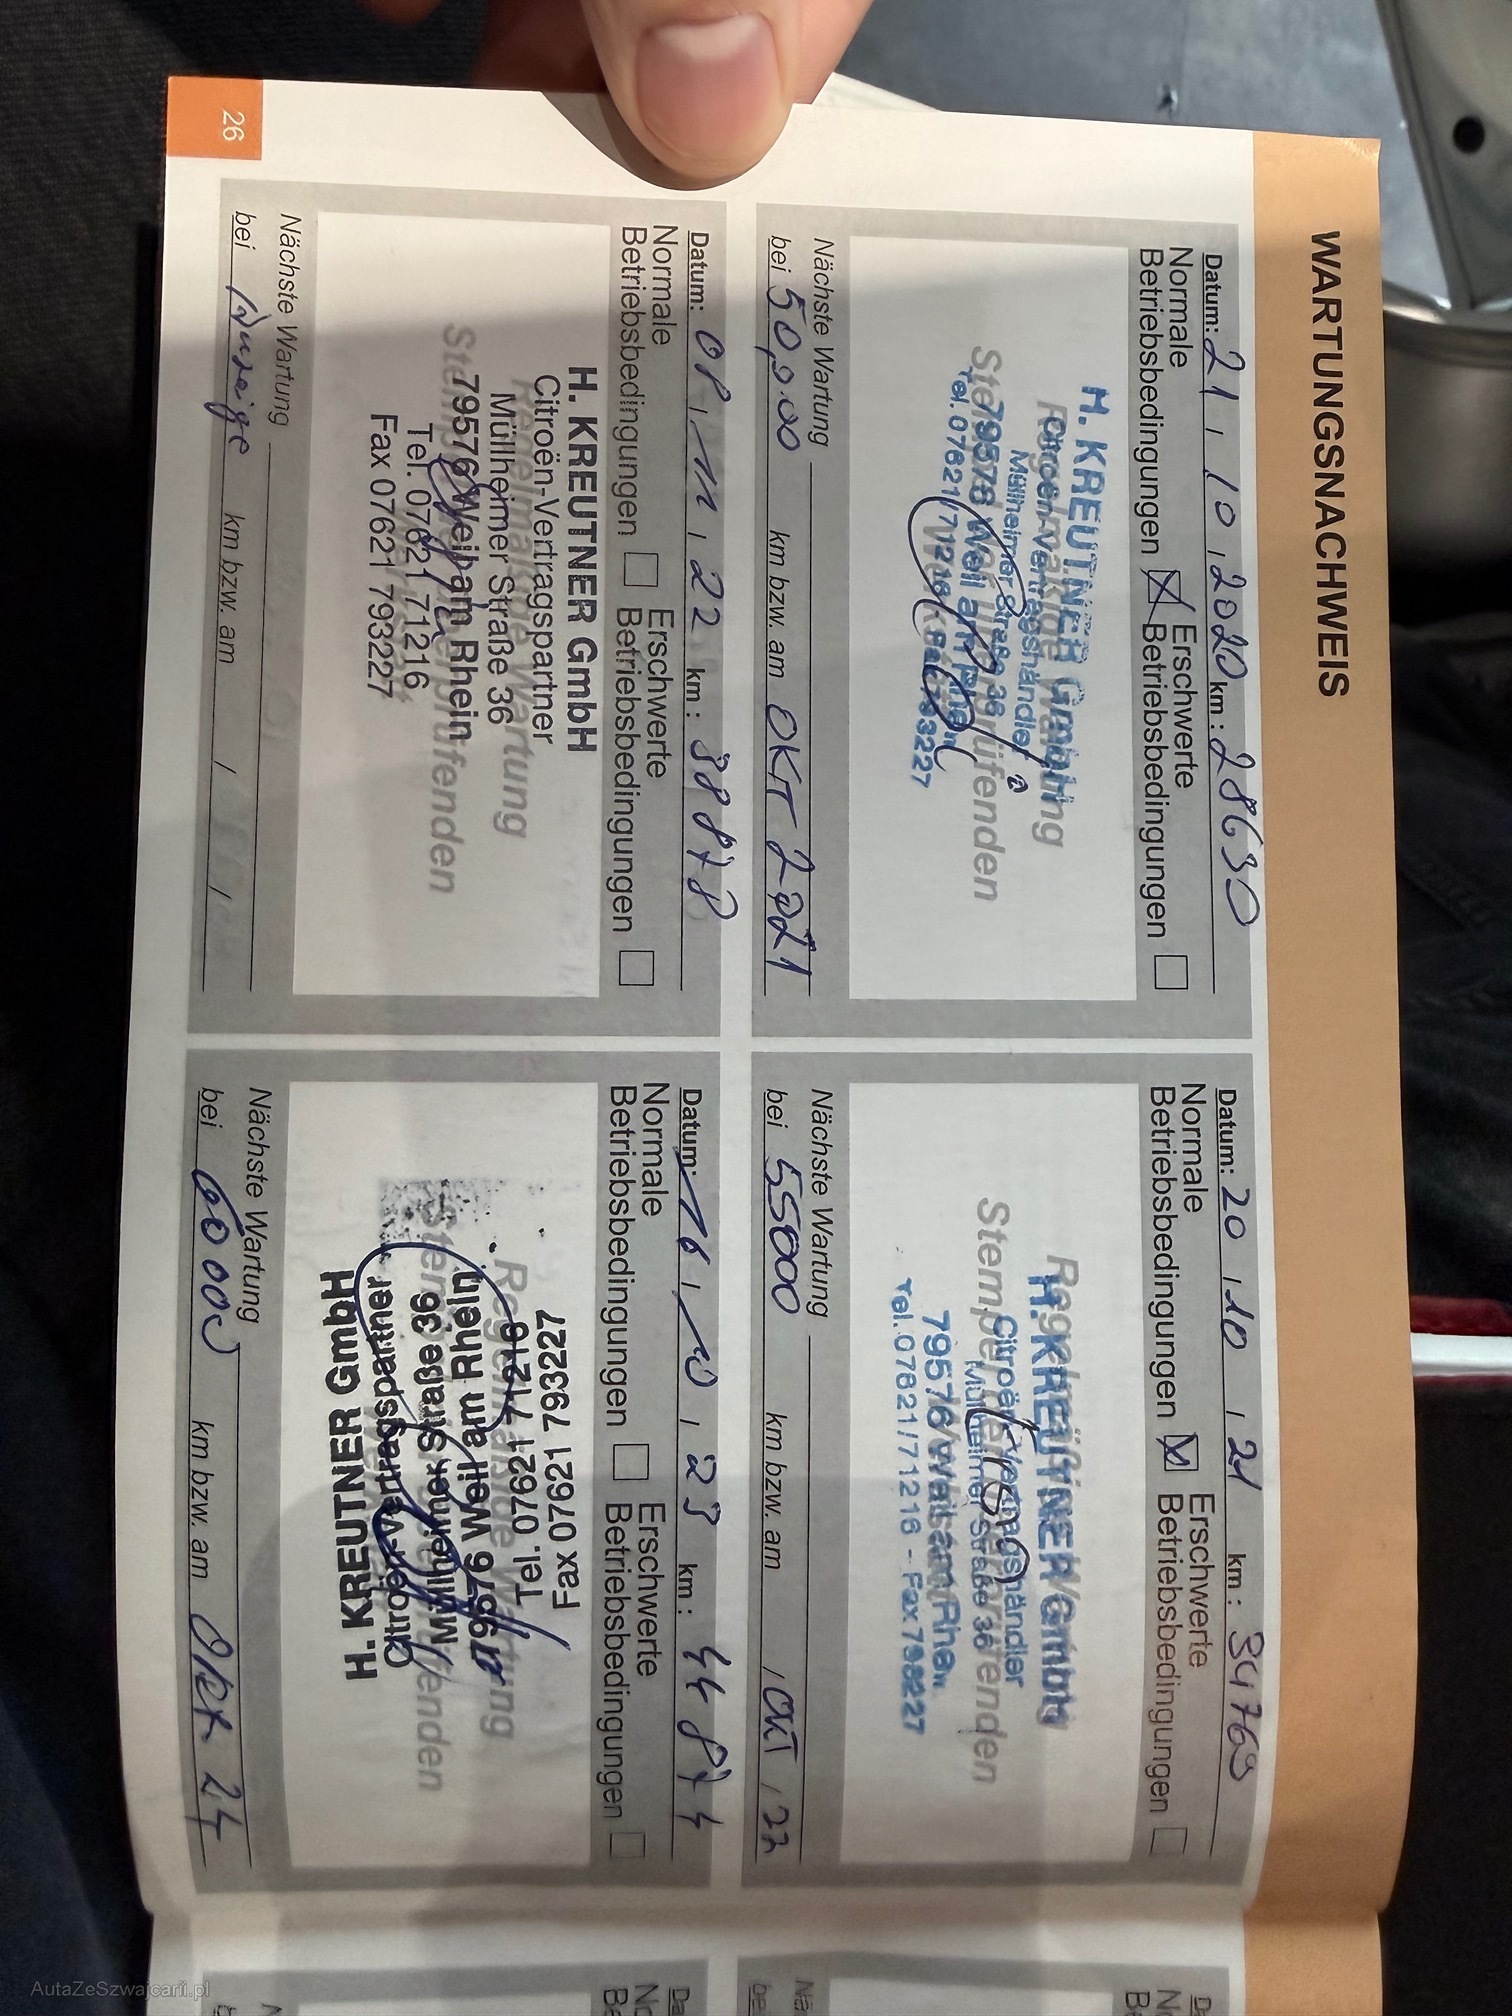 WARTUNGSNACHWEIS
Datum: 21, 10, 2020 km: 28630
Normale Betriebsbedingungen
Erschwerte Betriebsbedingungen
Regelmäßige Wartung
Stempel des prüfenden
H. KREUTNER GmbH
Citroën-Vertragshändler
Müllheimer Straße 36
79576 Weil am Rhein
Tel. 07621/71216 - Fax 793227
Nächste Wartung
bei 50.000 km bzw. am OKT 2021
Datum: 20, 10, 21 km: 34769
Normale Betriebsbedingungen
Erschwerte Betriebsbedingungen
Stempel des prüfenden
H. KREUTNER GmbH
Citroën-Vertragshändler
Müllheimer Straße 36
79576 Weil am Rhein
Tel. 07621/71216 - Fax 793227
Nächste Wartung
bei 55000 km bzw. am , OKT, 22
Datum: 08, 11, 22 km: 38878
Normale Betriebsbedingungen
Erschwerte Betriebsbedingungen
H. KREUTNER GmbH
Citroën-Vertragspartner
Müllheimer Straße 36
79576 Weil am Rhein
Tel. 07621 71216
Fax 07621 793227
Nächste Wartung
bei Anzeige km bzw. am
Datum: 16, 10, 23 km: 44874
Normale Betriebsbedingungen
Erschwerte Betriebsbedingungen
H. KREUTNER GmbH
Citroën-Vertragspartner
Müllheimer Straße 36
79576 Weil am Rhein
Tel. 07621 71216
Fax 07621 793227
Nächste Wartung
bei 60000 km bzw. am Okt. 24
26
AutaZeSzwajcarii.pl